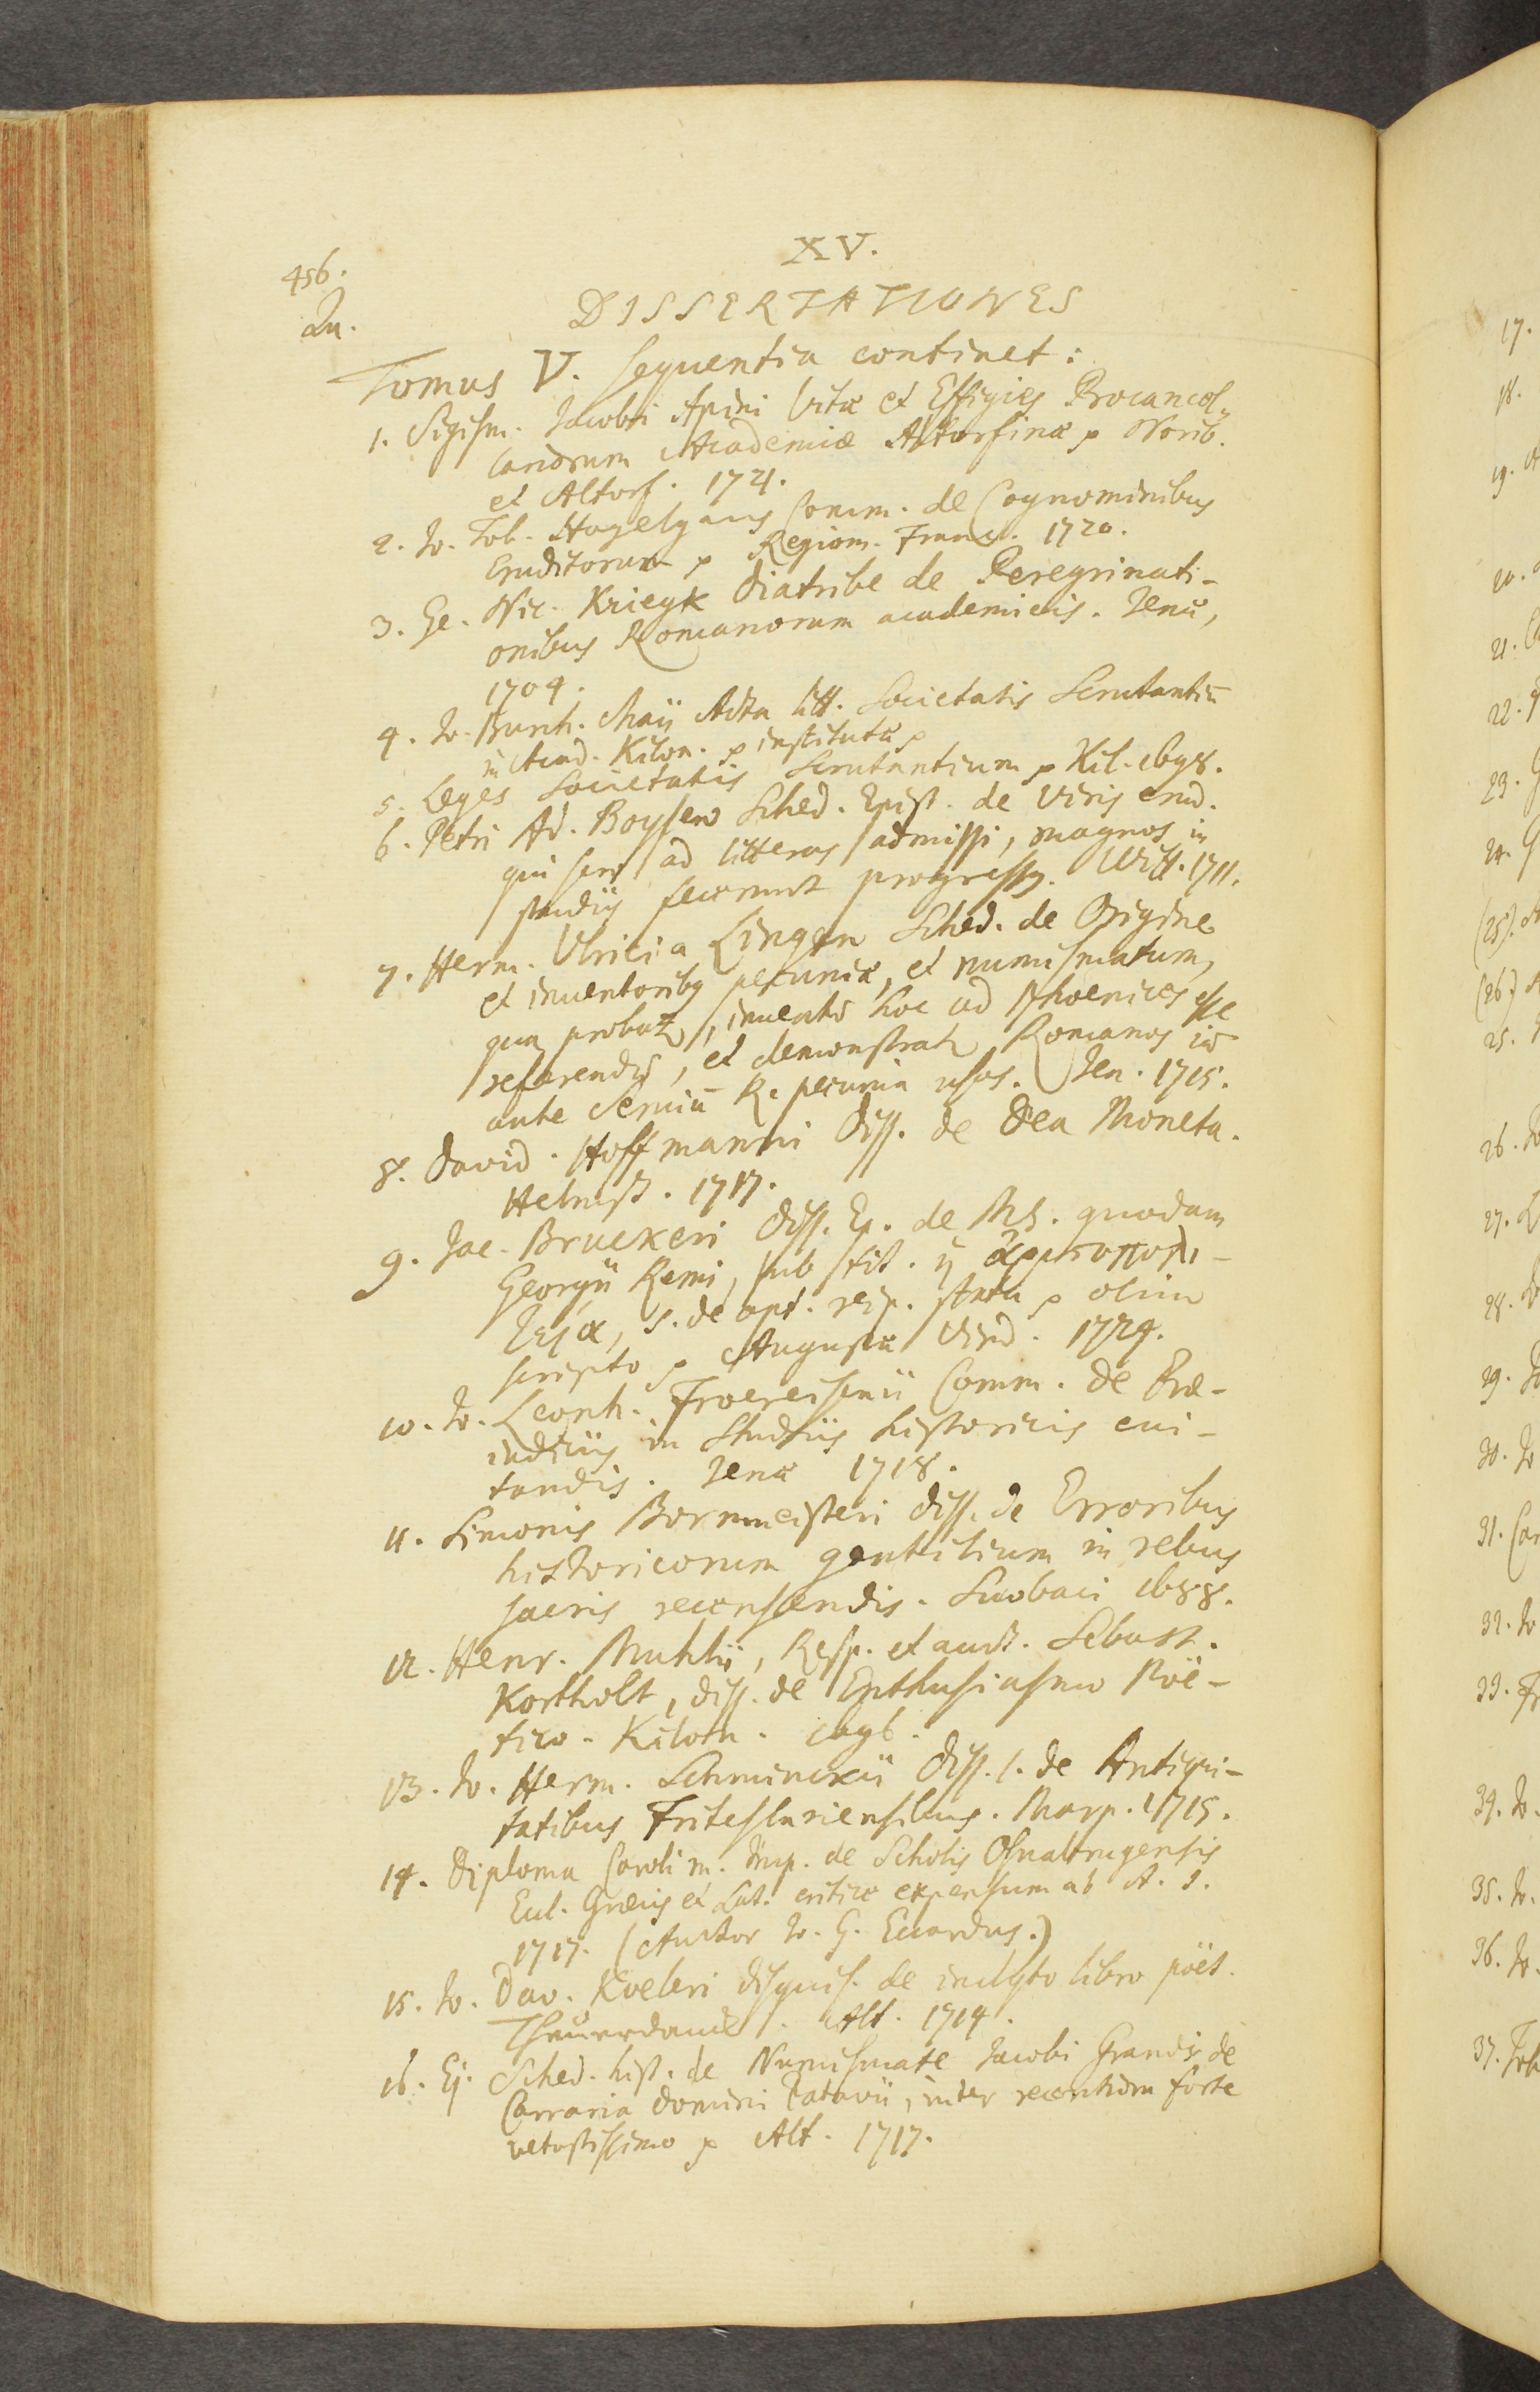 456.
XV.
Qu.
DISSERTATIONES
Tomus V. sequentia continet:
1. Sigism. Jacobi Apini Vitæ et Effigies Procancel-
lariorum Academiæ Altorfinæ p Norib.
et Altorf. 1721.
2. Jo. Tob. Hagelgans Comm. de Cognominibus
Eruditorum p Regiom. Franc. 1720.
3. Ge. Nic. Kriegk Diatribe de Peregrinati-
onibus Romanorum academicis. Jenæ,
1704.
4. Jo. Burch. Maji Acta litt. Societatis Scrutantiū
in Acad. Kilon. p institutæ p
5. Leges Societatis Scrutantium p Kil. 1698.
6. Petri Ad. Boysen Sched. Epist. de Viris erud.
qui sero ad litteras admissi, magnos in
studiis fecerunt progressus. Witt. 1711.
7. Herm. Ulrici a Lingen Sched. de Origine
et inventoribus pecuniæ, et numismatum,
qua probat, inventū hoc ad Phoenices esse
referendū, et demonstrat, Romanos
ante Serviū R. pecunia usos. Jen. 1715.
8. David. Hoffmanni Diss. de Dea Moneta.
Helmst. 1717.
9. Jac. Bruckeri Diss. Ep. de MS. quodam
Georgii Remi, sub tit. ἡ ἁρμοπολι-
τεία, s. de opt. reip. statu p olim
scripto p Augustæ Vind. 1724.
10. Jo. Leonh. Froereisenii Comm. de Præ-
iudiciis in Studiis historicis evi-
tandis. Jenæ 1718.
11. Simonis Bornmeisteri Diss. de Erroribus
historicorum gentilium in rebus
sacris recensendis. Suobaci 1688.
12. Henr. Muhlii, Resp. et auct. Sebast.
Kortholt, diss. de Enthusiasmo Poë-
tico. Kilon. 1696.
13. Jo. Herm. Schminckii Diss. 1. de Antiqui-
tatibus Friteslariensibus. Marp. 1715.
14. Diploma Caroli m. Imp. de Scholis Osnabrugensis
Eccl. Græcis et Lat. critice expensum ab A. J.
1717. (Auctor J. G. Eccardus.)
15. Jo. Dav. Koeleri disquis. de inclyto libro poët.
Theuerdanck. Alt. 1714.
16. Ej. Sched. hist. de Numismate Jacobi Grandis de
Carraria domini Patavii, inter recentiora forte
vetustissimo p Alt. 1717.
17.
18.
19.
20.
21.
22.
23.
24.
(25).
(26)
25.
26.
27.
28.
29.
30.
31.
32.
33.
34.
35.
36.
37.